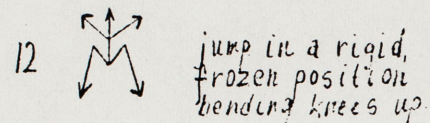 12
jump in a rigid,
frozen position
bending knees up.